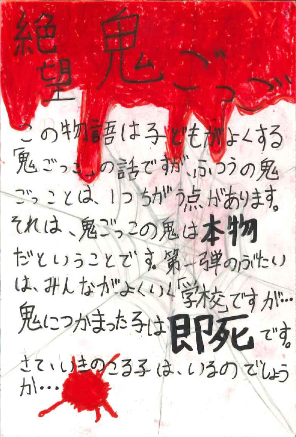 絶望鬼ごっこ
この物語は子どもがよくする
「鬼ごっこ」の話ですが、ふつうの鬼
ごっことは、1つちがう点があります。
それは、鬼ごっこの鬼は本物
だということです。第一弾のぶたい
は、みんながよくいく「学校」ですが…
鬼につかまった子は即死です。
さて、いきのこる子は、いるのでしょう
か…